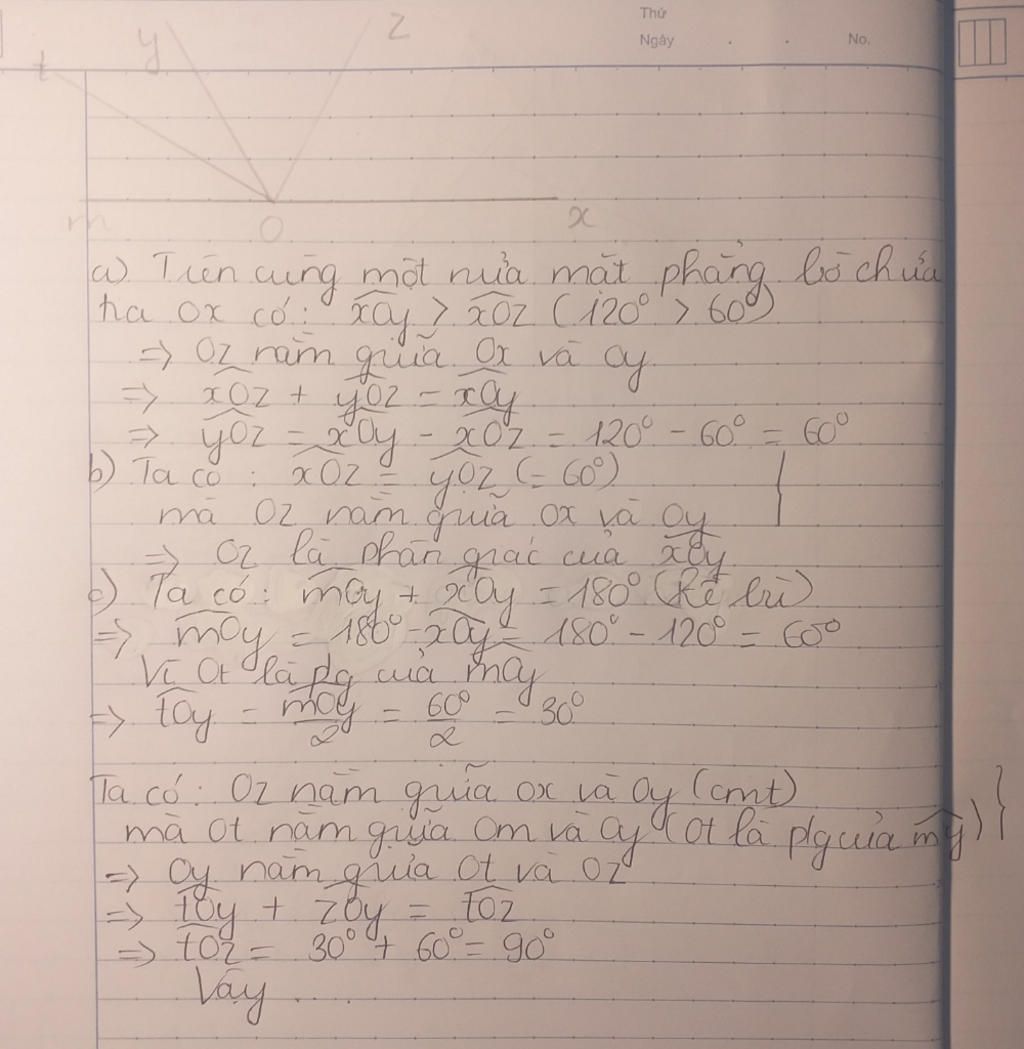 Thứ
Ngày . . No.
y z
t
m O x
a) Trên cùng một nửa mặt phẳng bờ chứa
tia Ox có: xOy > xOz (120° > 60°)
=> Oz nằm giữa Ox và Oy
=> xOz + yOz = xOy
=> yOz = xOy - xOz = 120° - 60° = 60°
b) Ta có : xOz = yOz (= 60°)
mà Oz nằm giữa Ox và Oy }
=> Oz là phân giác của xOy
c) Ta có: mOy + xOy = 180° (kề bù)
=> mOy = 180° - xOy = 180° - 120° = 60°
Vì Ot là pg của mOy
=> tOy = mOy/2 = 60°/2 = 30°
Ta có: Oz nằm giữa Ox và Oy (cmt) }
mà Ot nằm giữa Om và Oy (Ot là plg của my)
=> Oy nằm giữa Ot và Oz
=> tOy + zOy = tOz
=> tOz = 30° + 60° = 90°
Vậy ....